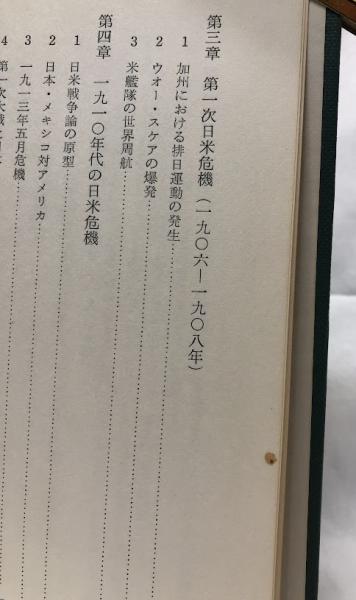 第三章 第一次日米危機(一九〇六―一九〇八年)
1 加州における排日運動の発生
2 ウォー・スケアの爆発
3 米艦隊の世界周航
第四章 一九一〇年代の日米危機
1 日米戦争論の原型
2 日本・メキシコ対アメリカ
3 一九一三年五月危機
4 第一次大戦